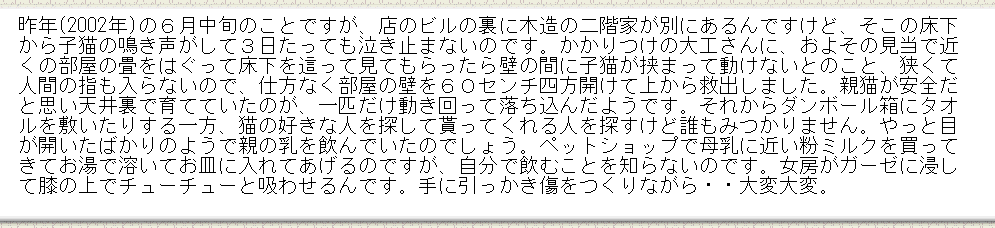 昨年(2002年)の６月中旬のことですが、店のビルの裏に木造の二階家が別にあるんですけど、そこの床下
から子猫の鳴き声がして３日たっても泣き止まないのです。かかりつけの大工さんに、およその見当で近
くの部屋の畳をはぐって床下を這って見てもらったら壁の間に子猫が挟まって動けないとのこと、狭くて
人間の指も入らないので、仕方なく部屋の壁を６０センチ四方開けて上から救出しました。親猫が安全だ
と思い天井裏で育てていたのが、一匹だけ動き回って落ち込んだようです。それからダンボール箱にタオ
ルを敷いたりする一方、猫の好きな人を探して貰ってくれる人を探すけど誰もみつかりません。やっと目
が開いたばかりのようで親の乳を飲んでいたのでしょう。ペットショップで母乳に近い粉ミルクを買って
きてお湯で溶いてお皿に入れてあげるのですが、自分で飲むことを知らないのです。女房がガーゼに浸し
て膝の上でチューチューと吸わせるんです。手に引っかき傷をつくりながら・・大変大変。